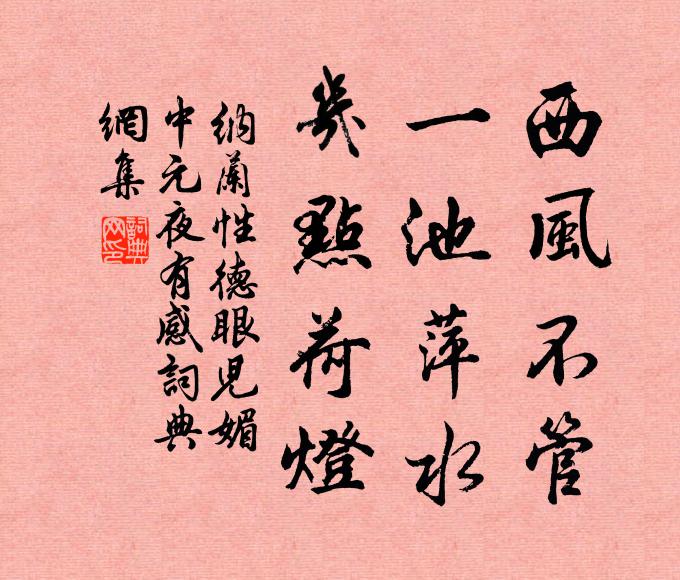 西風不管
一池萍水
幾點荷燈
納蘭性德眼兒媚
中元夜有感詞典
網集
詞典
网印